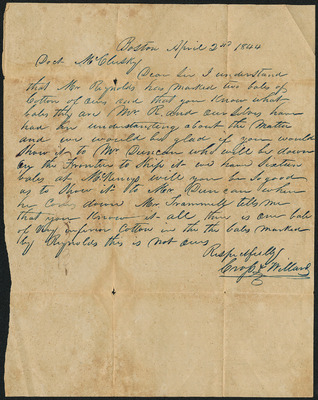 Boston April 2nd 1844
Doct McClusky
Dear Sir I understand
that Mr Reynolds has marked two bales of
Cotton of ours and that you Know what
bales they are Mr R. and our selves have
had an understanding about the Matter
and we would be glad if you would
show it to Mr Duncan who will be down
by the Frontier to ship it we have Sixteen
bales at McKinnys will you be so good
as to Show it to Mr Duncan when
he Comes down Mr Trammell tells me
that you Know it all, there is one bale
of very inferior Cotton in the bales marked
by Reynolds this is not ours
Respectfully
Cross & Willard